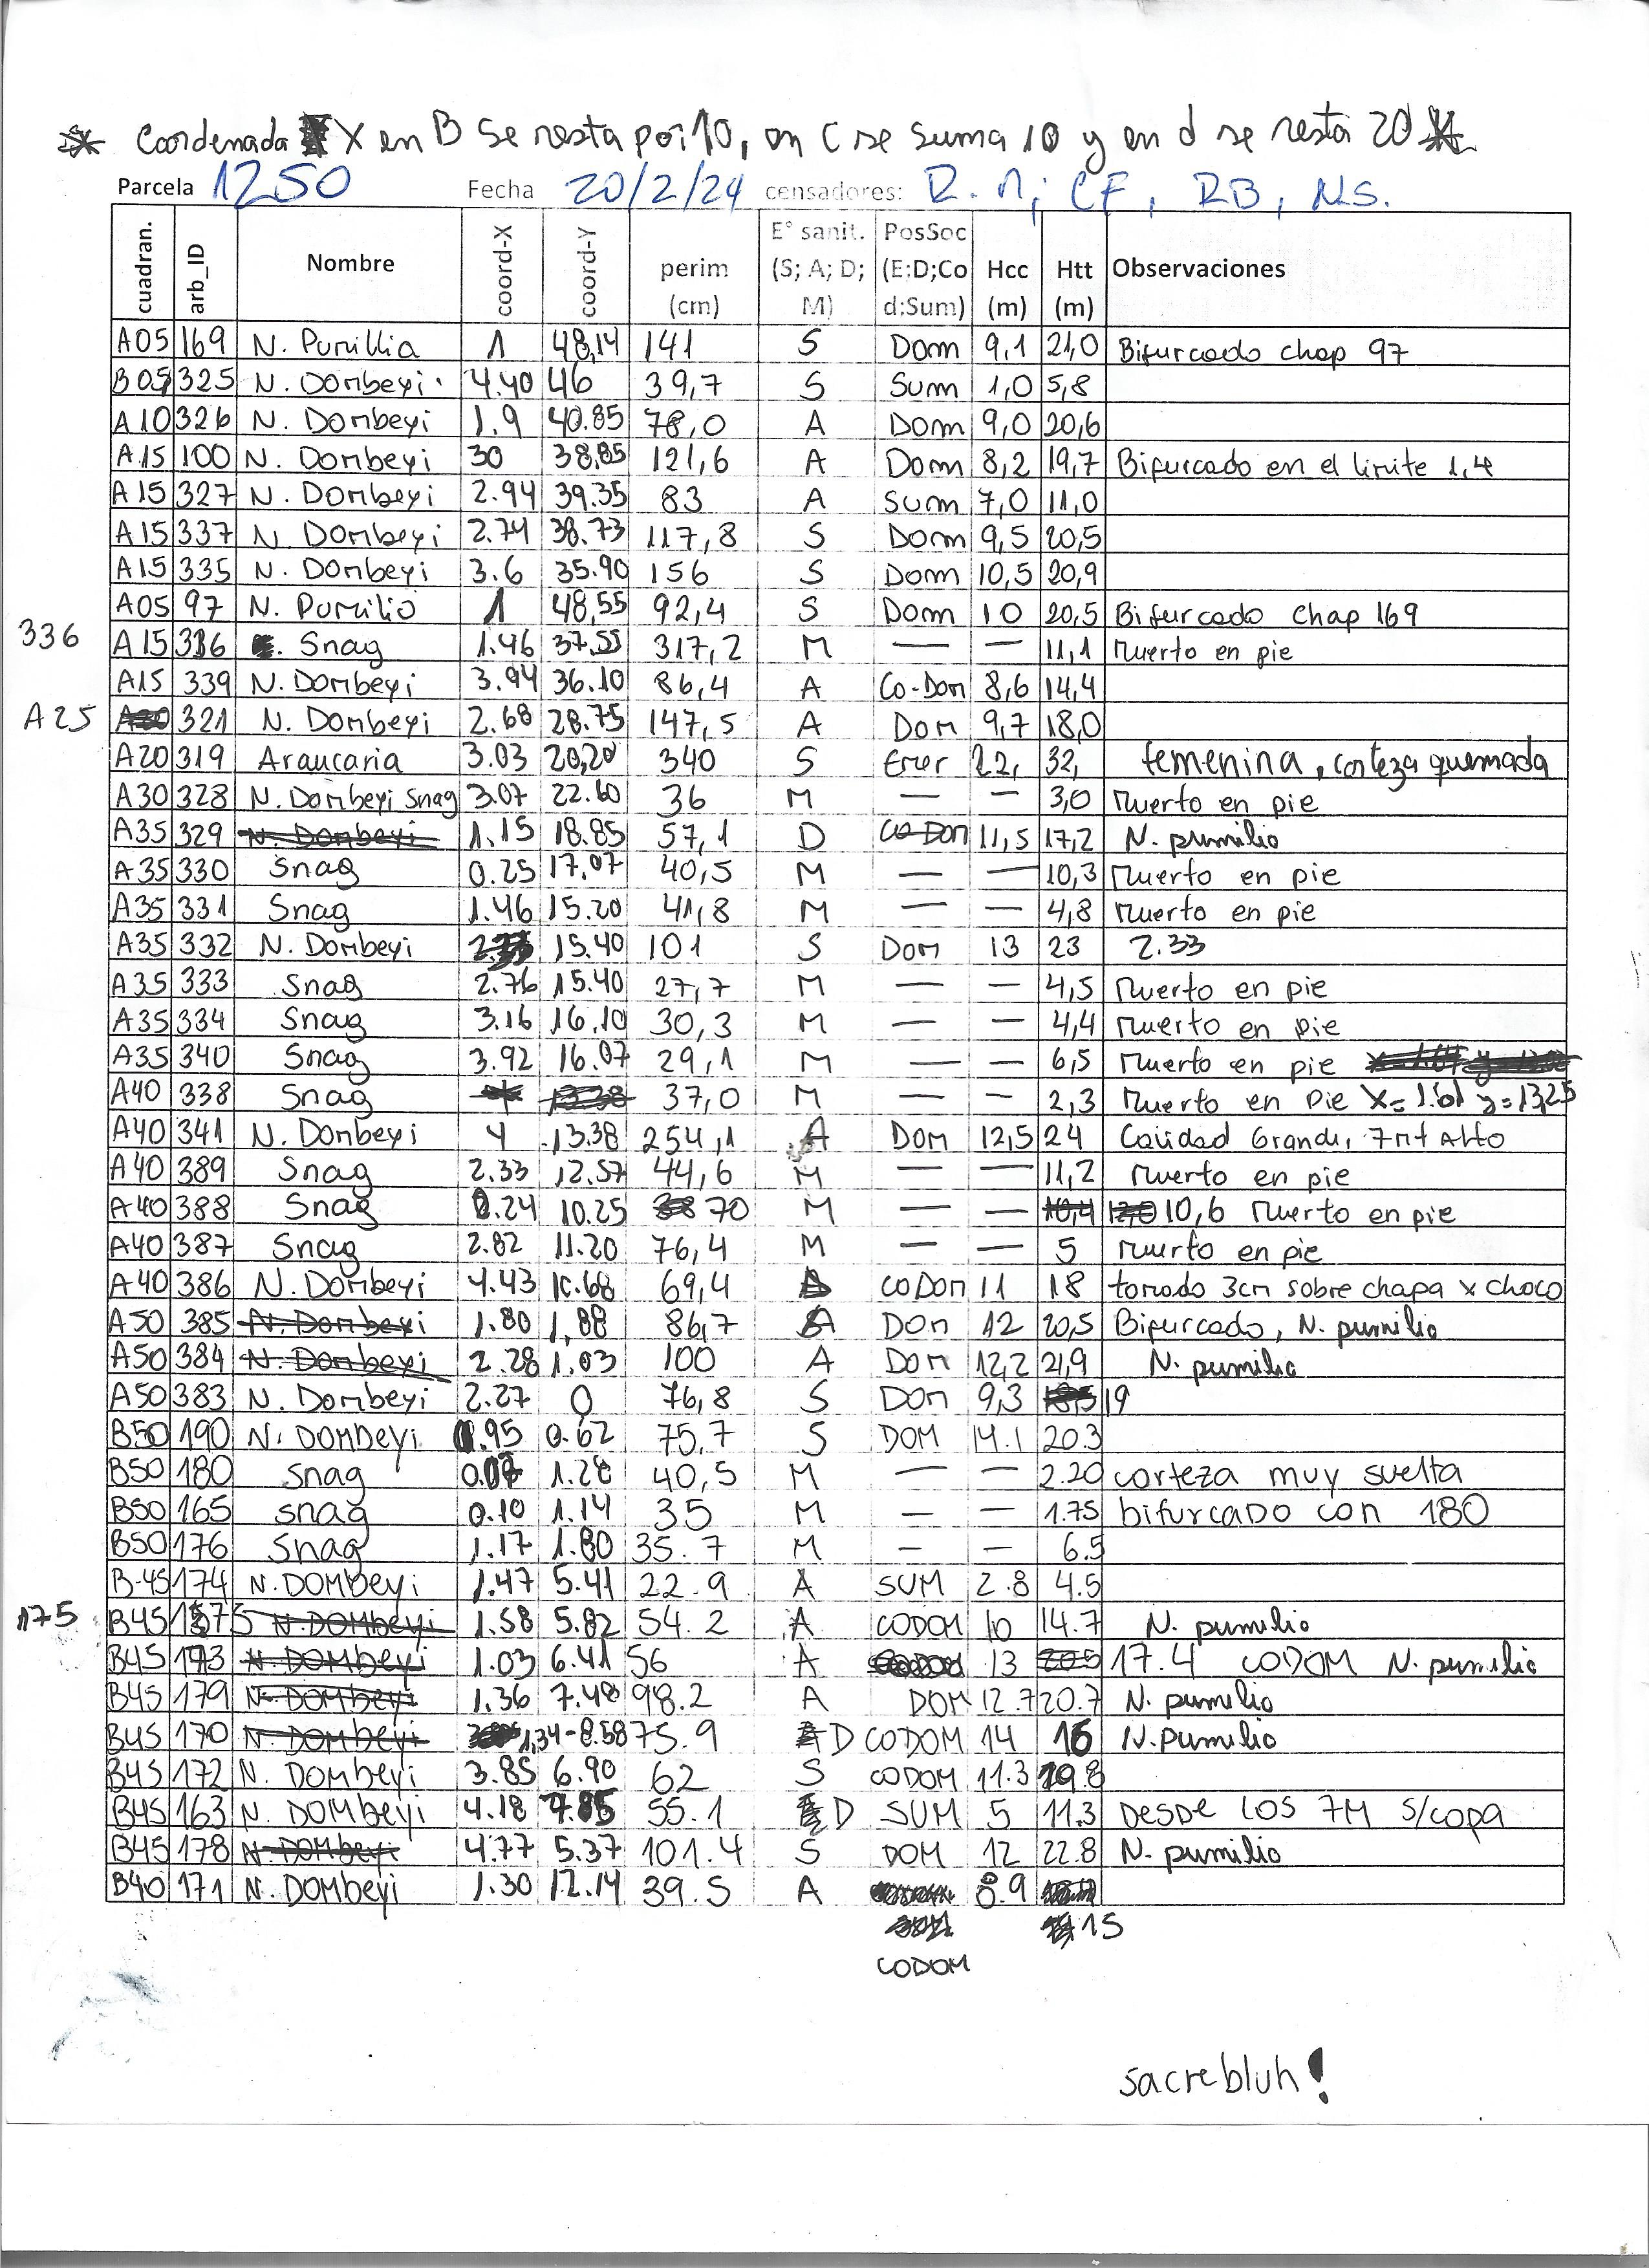 * Coordenada X en B se resta por 10, en C se suma 10 y en d se resta 20 *
Parcela 1250 Fecha 20/2/24 censadores: R.M; CF, RB, NS.
cuadran. arb_ID Nombre coord-X coord-Y perim (cm) E° sanit. (S; A; D; M) PosSoc (E;D;Cod;Sum) Hcc (m) Htt (m) Observaciones
A05 169 N. Pumillia 1 48,14 141 S Dom 9,1 21,0 Bifurcado chap 97
B05 325 N. Dombeyi. 4.40 46 39,7 S Sum 1,0 5,8
A10 326 N. Dombeyi 1.9 40.85 78,0 A Dom 9,0 20,6
A15 100 N. Dombeyi 30 38,85 121,6 A Dom 8,2 19,7 Bifurcado en el limite 1,4
A15 327 N. Dombeyi 2.94 39.35 83 A Sum 7,0 11,0
A15 337 N. Dombeyi 2.74 38.73 117,8 S Dom 9,5 20,5
A15 335 N. Dombeyi 3.6 35.90 156 S Dom 10,5 20,9
A05 97 N. Pumilio 1 48,55 92,4 S Dom 10 20,5 Bifurcado Chap 169
336 A15 336 Snag 1.46 37.55 317,2 M — — 11,1 Muerto en pie
A15 339 N. Dombeyi 3.94 36.10 86,4 A Co-Dom 8,6 14,4
A25 321 N. Dombeyi 2.68 28.75 147,5 A Dom 9,7 18,0
A20 319 Araucaria 3.03 20,20 340 S Emer 22, 32, femenina, corteza quemada
A30 328 N. Dombeyi Snag 3.07 22.60 36 M — — 3,0 Muerto en pie
A35 329 N. Dombeyi 1.15 18.85 57,1 D Co-Dom 11,5 17,2 N. pumilio
A35 330 Snag 0.25 17,07 40,5 M — — 10,3 Muerto en pie
A35 331 Snag 1.46 15.20 41,8 M — — 4,8 Muerto en pie
A35 332 N. Dombeyi 15.40 101 S Dom 13 23 2.33
A35 333 Snag 2.76 15.40 27,7 M — — 4,5 Muerto en pie
A35 334 Snag 3.16 16.10 30,3 M — — 4,4 Muerto en pie
A35 340 Snag 3.92 16.07 29,1 M — — 6,5 Muerto en pie
A40 338 Snag 37,0 M — — 2,3 Muerto en pie X= 1.61 y=13,25
A40 341 N. Dombeyi 4 13.38 254,1 A Dom 12,5 24 Cavidad Grande, 7mt Alto
A40 389 Snag 2.33 12.57 44,6 M — — 11,2 Muerto en pie
A40 388 Snag 2.24 10.25 70 M — — 10,4 12,0 10,6 Muerto en pie
A40 387 Snag 2.82 11.20 76,4 M — — 5 Muerto en pie
A40 386 N. Dombeyi 4.43 10.68 69,4 CoDom 11 18 tomado 3cm sobre chapa x choco
A50 385 N. Dombeyi 1.80 1,88 86,7 A Dom 12 20,5 Bifurcado, N. pumilio
A50 384 N. Dombeyi 2.28 1.03 100 A Dom 12,2 21,9 N. pumilio
A50 383 N. Dombeyi 2.27 0 76,8 S Dom 9,3 19
B50 190 N. DOMBEYI 0.95 0.62 75.7 S DOM 14.1 20.3
B50 180 snag 1.28 40,5 M — — 2.20 corteza muy suelta
B50 165 snag 0.10 1.14 35 M — — 1.75 bifurcado con 180
B50 176 Snag 1.17 1.80 35.7 M — — 6.5
B-45 174 N. DOMBeyi 1.47 5.41 22.9 A SUM 2.8 4.5
175 B45 N. DOMBeyi 1.58 5.82 54.2 A CODOM 10 14.7 N. pumilio
B45 173 N. DOMBeyi 1.03 6.41 56 A 13 20.5 17.4 CODOM N. pumilio
B45 179 N. DOMBeyi 1.36 7.48 98.2 A DOM 12.7 20.7 N. pumilio
B45 170 N. DOMBeyi 1,34 - 8.58 75.9 D CODOM 14 16 N. Pumilio
B45 172 N. DOMBeyi 3.85 6.90 62 S CODOM 11.3 19.8
B45 163 N. DOMBeyi 4.18 7.85 55.1 D SUM 5 11.3 DESDE LOS 7M S/copa
B45 178 N. DOMBeyi 4.77 5.37 101.4 S DOM 12 22.8 N. pumilio
B40 171 N. DOMBeyi 1.30 12.14 39.5 A 8.9
15
CODOM
sacrebluh!